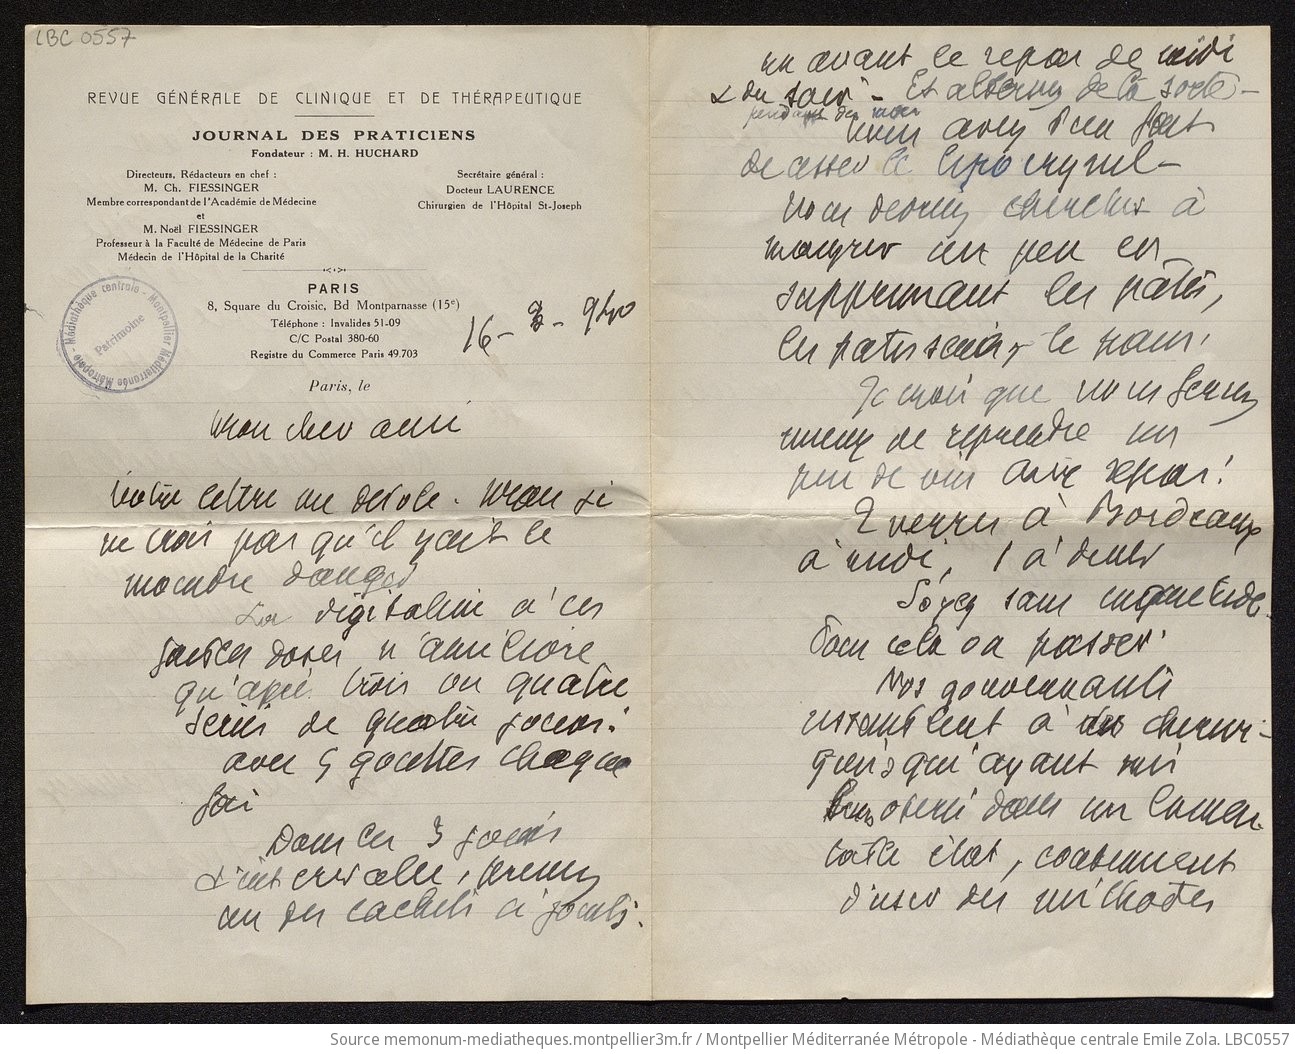 LBC 0557
REVUE GÉNÉRALE DE CLINIQUE ET DE THÉRAPEUTIQUE
JOURNAL DES PRATICIENS
Fondateur : M. H. HUCHARD
Directeurs, Rédacteurs en chef :
M. Ch. FIESSINGER
Membre correspondant de l'Académie de Médecine
et
M. Noël FIESSINGER
Professeur à la Faculté de Médecine de Paris
Médecin de l'Hôpital de la Charité
Secrétaire général :
Docteur LAURENCE
Chirurgien de l'Hôpital St-Joseph
PARIS
8, Square du Croisic, Bd Montparnasse (15e)
Téléphone : Invalides 51-09
C/C Postal 380-60
Registre du Commerce Paris 49.703
Médiathèque centrale - Montpellier Méditerranée Métropole -
Patrimoine
16 - 3 - 940
Paris, le
Mon cher ami
Votre lettre me désole. Mon je
ne crois pas qu'il y ait le
moindre danger
La digitaline à ces
faibles doses n'améliore
qu'après trois ou quatre
séries de quatre jours.
avec 5 gouttes chaque
fois
Dans les 3 jours
d'intervalle, prenez
un des cachets ci joints.
un avant le repas de midi
& du soir - Et alternez de la sorte -
pendant des mois
vous avez d'un
de asseo le
Vous devriez chercher à
maigrir un peu en
supprimant les pâtes,
les patisseries, le pain.
Je crois que vous feriez
mieux de reprendre un
peu de vin aux repas !
2 verres à Bordeaux
à midi, 1 à dîner
Soyez sans inquiétude.
Tout cela va passer.
Nos gouvernants
ressemblent à des chirur-
giens qui ayant mis
dans un lamen-
table état, continuent
d'user des méthodes
Source memonum-mediatheques.montpellier3m.fr / Montpellier Méditerranée Métropole - Médiathèque centrale Emile Zola. LBC0557